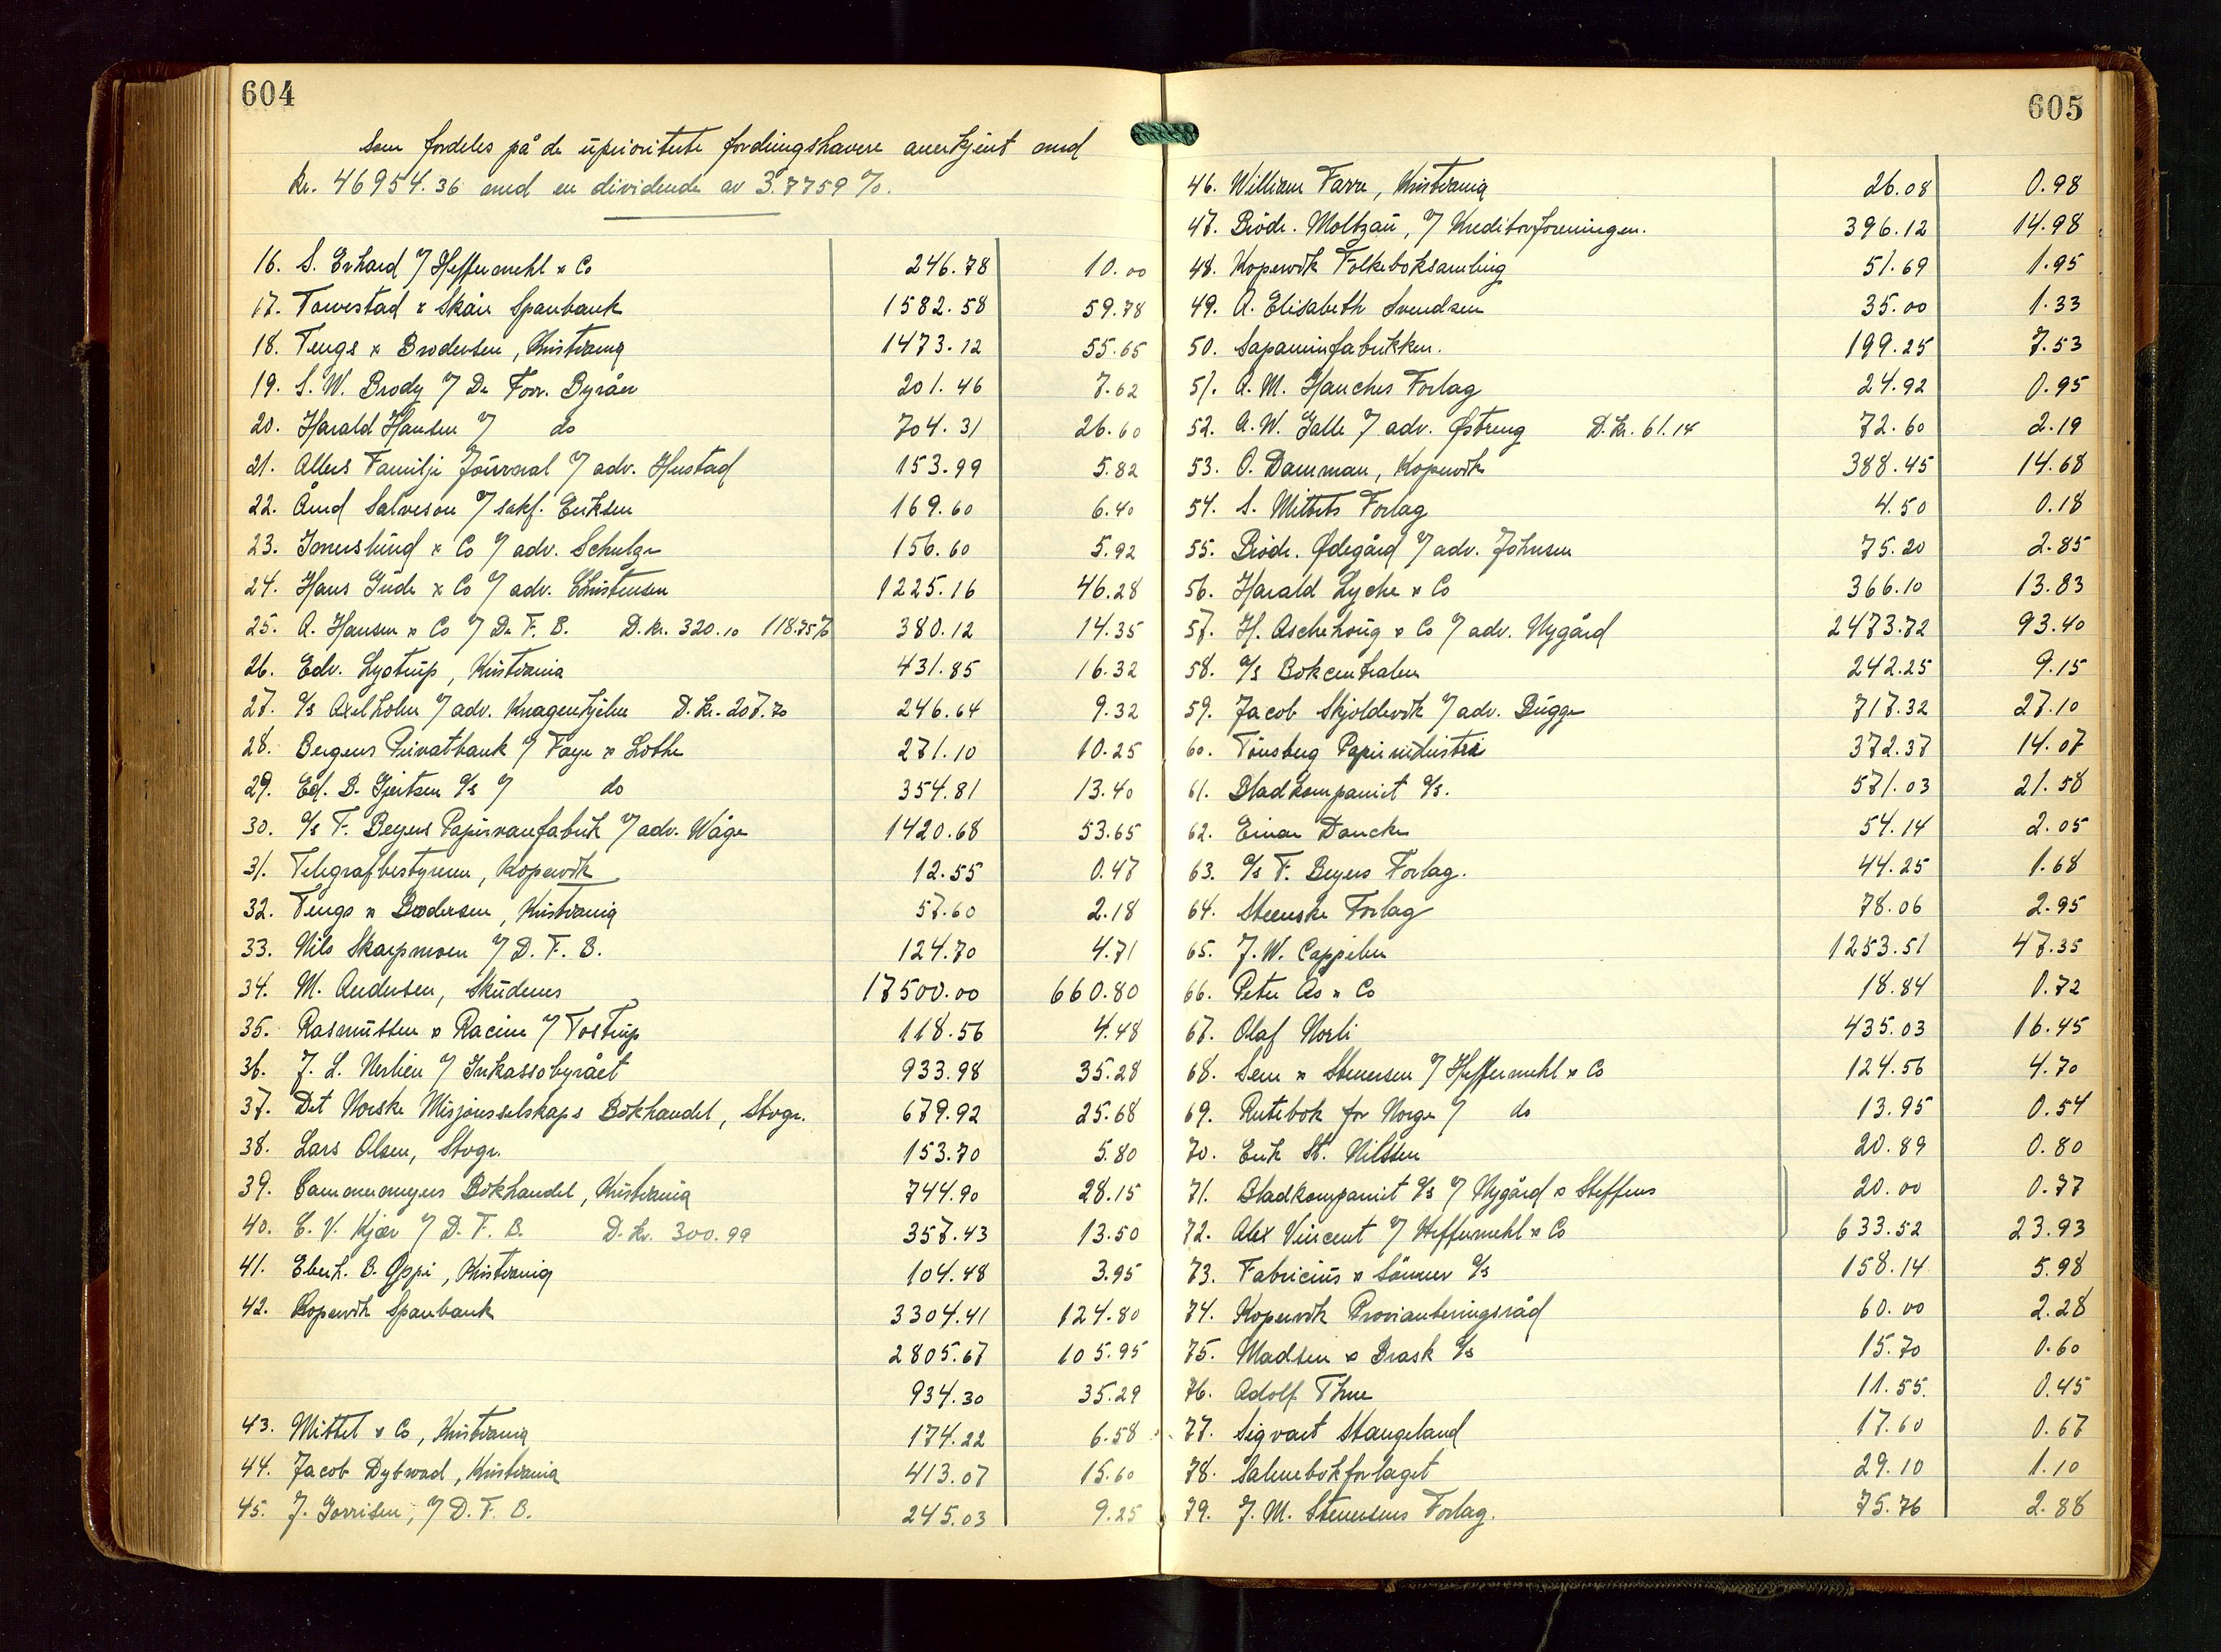 604
Som fordeles på de uprioriterte fordringshavere anerkjent med
kr. 46954.36 med en dividende av 3.7759 %.
16. S. Erhard 7/ Heffermehl & Co 246.78 10.00
17. Torvestad & Skåre Sparebank 1582.58 59.78
18. Tengs & Brodersen, Kristiania 1473.12 55.65
19. S. W. Brody 7/ De Forr. Byråer 201.46 7.62
20. Harald Hansen 7/ do 704.31 26.60
21. Allers Familje Journal 7/ adv. Hustad 153.99 5.82
22. Åmd Salveson 7/ sakf. Eriksen 169.60 6.40
23. Jonerslund & Co 7/ adv. Schulze 156.60 5.92
24. Hans Gude & Co 7/ adv. Christensen 1225.16 46.28
25. A. Hansen & Co 7/ De F. B. D.kr. 320.10 118.75% 380.12 14.35
26. Edv. Lystrup, Kristiania 431.85 16.32
27. A/s Axel Holm 7/ adv. Knagenhjelm D.kr. 207.70 246.64 9.32
28. Bergens Privatbank 7/ Faye & Lothe 271.10 10.25
29. Ed. B. Gjertsen A/s 7/ do 354.81 13.40
30. A/s F. Beyers Papirvarefabrik 7/ adv. Wåge 1420.68 53.65
31. Telegrafbestyreren, Kopervik 12.55 0.47
32. Tengs & Brodersen, Kristiania 57.60 2.18
33. Nils Skarpmoen 7/ D. F. B. 124.70 4.71
34. M. Andersen, Skudenes 17500.00 660.80
35. Rasmussen & Racine 7/ Tostrup 118.56 4.48
36. J. L. Nerlien 7/ Inkassobyrået 933.98 35.28
37. Det Norske Misjonsselskaps Bokhandel, Stvgr. 679.92 25.68
38. Lars Olsen, Stvgr. 153.70 5.80
39. Cammermeyers Bokhandel, Kristiania 744.90 28.15
40. C. V. Kjær 7/ D. F. B. D.kr. 300.99 357.43 13.50
41. Eberh. B. Oppi, Kristiania 104.48 3.95
42. Kopervik Sparebank 3304.41 124.80
2805.67 105.95
934.30 35.29
43. Mittet & Co, Kristiania 174.22 6.58
44. Jacob Dybwad, Kristiania 413.07 15.60
45. J. Gorrisen, 7/ D. F. B. 245.03 9.25
605
46. William Farre, Kristiania 26.08 0.98
47. Brödr. Moltzau, 7/ Kreditorforeningen. 396.12 14.98
48. Kopervik Folkeboksamling 51.69 1.95
49. A. Elisabeth Svendsen 35.00 1.33
50. Sapaminfabrikken. 199.25 7.53
51. A. M. Hanches Forlag 24.92 0.95
52. A. W. Galle 7/ adv. Østreng D.kr. 61.14 72.60 2.19
53. O. Damman, Kopervik 388.45 14.68
54. S. Mittets Forlag 4.50 0.18
55. Brödr. Ødegård 7/ adv. Johnsen 75.20 2.85
56. Harald Lyche & Co 366.10 13.83
57. H. Aschehoug & Co 7/ adv. Nygård 2473.72 93.40
58. A/s Bokcentralen 242.25 9.15
59. Jacob Skjoldevik 7/ adv. Bugge 717.32 27.10
60. Tönsberg Papirindustri 372.37 14.07
61. Bladkompaniet A/s. 571.03 21.58
62. Einar Dancke 54.14 2.05
63. A/s F. Beyers Forlag. 44.25 1.68
64. Steenske Forlag 78.06 2.95
65. J. W. Cappelen 1253.51 47.35
66. Peter Ås & Co 18.84 0.72
67. Olaf Norli 435.03 16.45
68. Sem & Stenersen 7/ Heffermehl & Co 124.56 4.70
69. Rutebok for Norge 7/ do 13.95 0.54
70. Erik St. Nilssen 20.89 0.80
71. Bladkompaniet A/s 7/ Nygård & Steffens 20.00 0.77
72. Alex Vincent 7/ Heffermehl & Co 633.52 23.93
73. Fabricius & Sönner A/s 158.14 5.98
74. Kopervik Provianteringsråd 60.00 2.28
75. Madsen & Brask A/s 15.70 0.60
76. Adolf Thue 11.55. 0.45
77. Sigvart Stangeland 17.60 0.67
78. Salmebokforlaget 29.10 1.10
79. J. M. Stenersens Forlag. 75.76 2.88